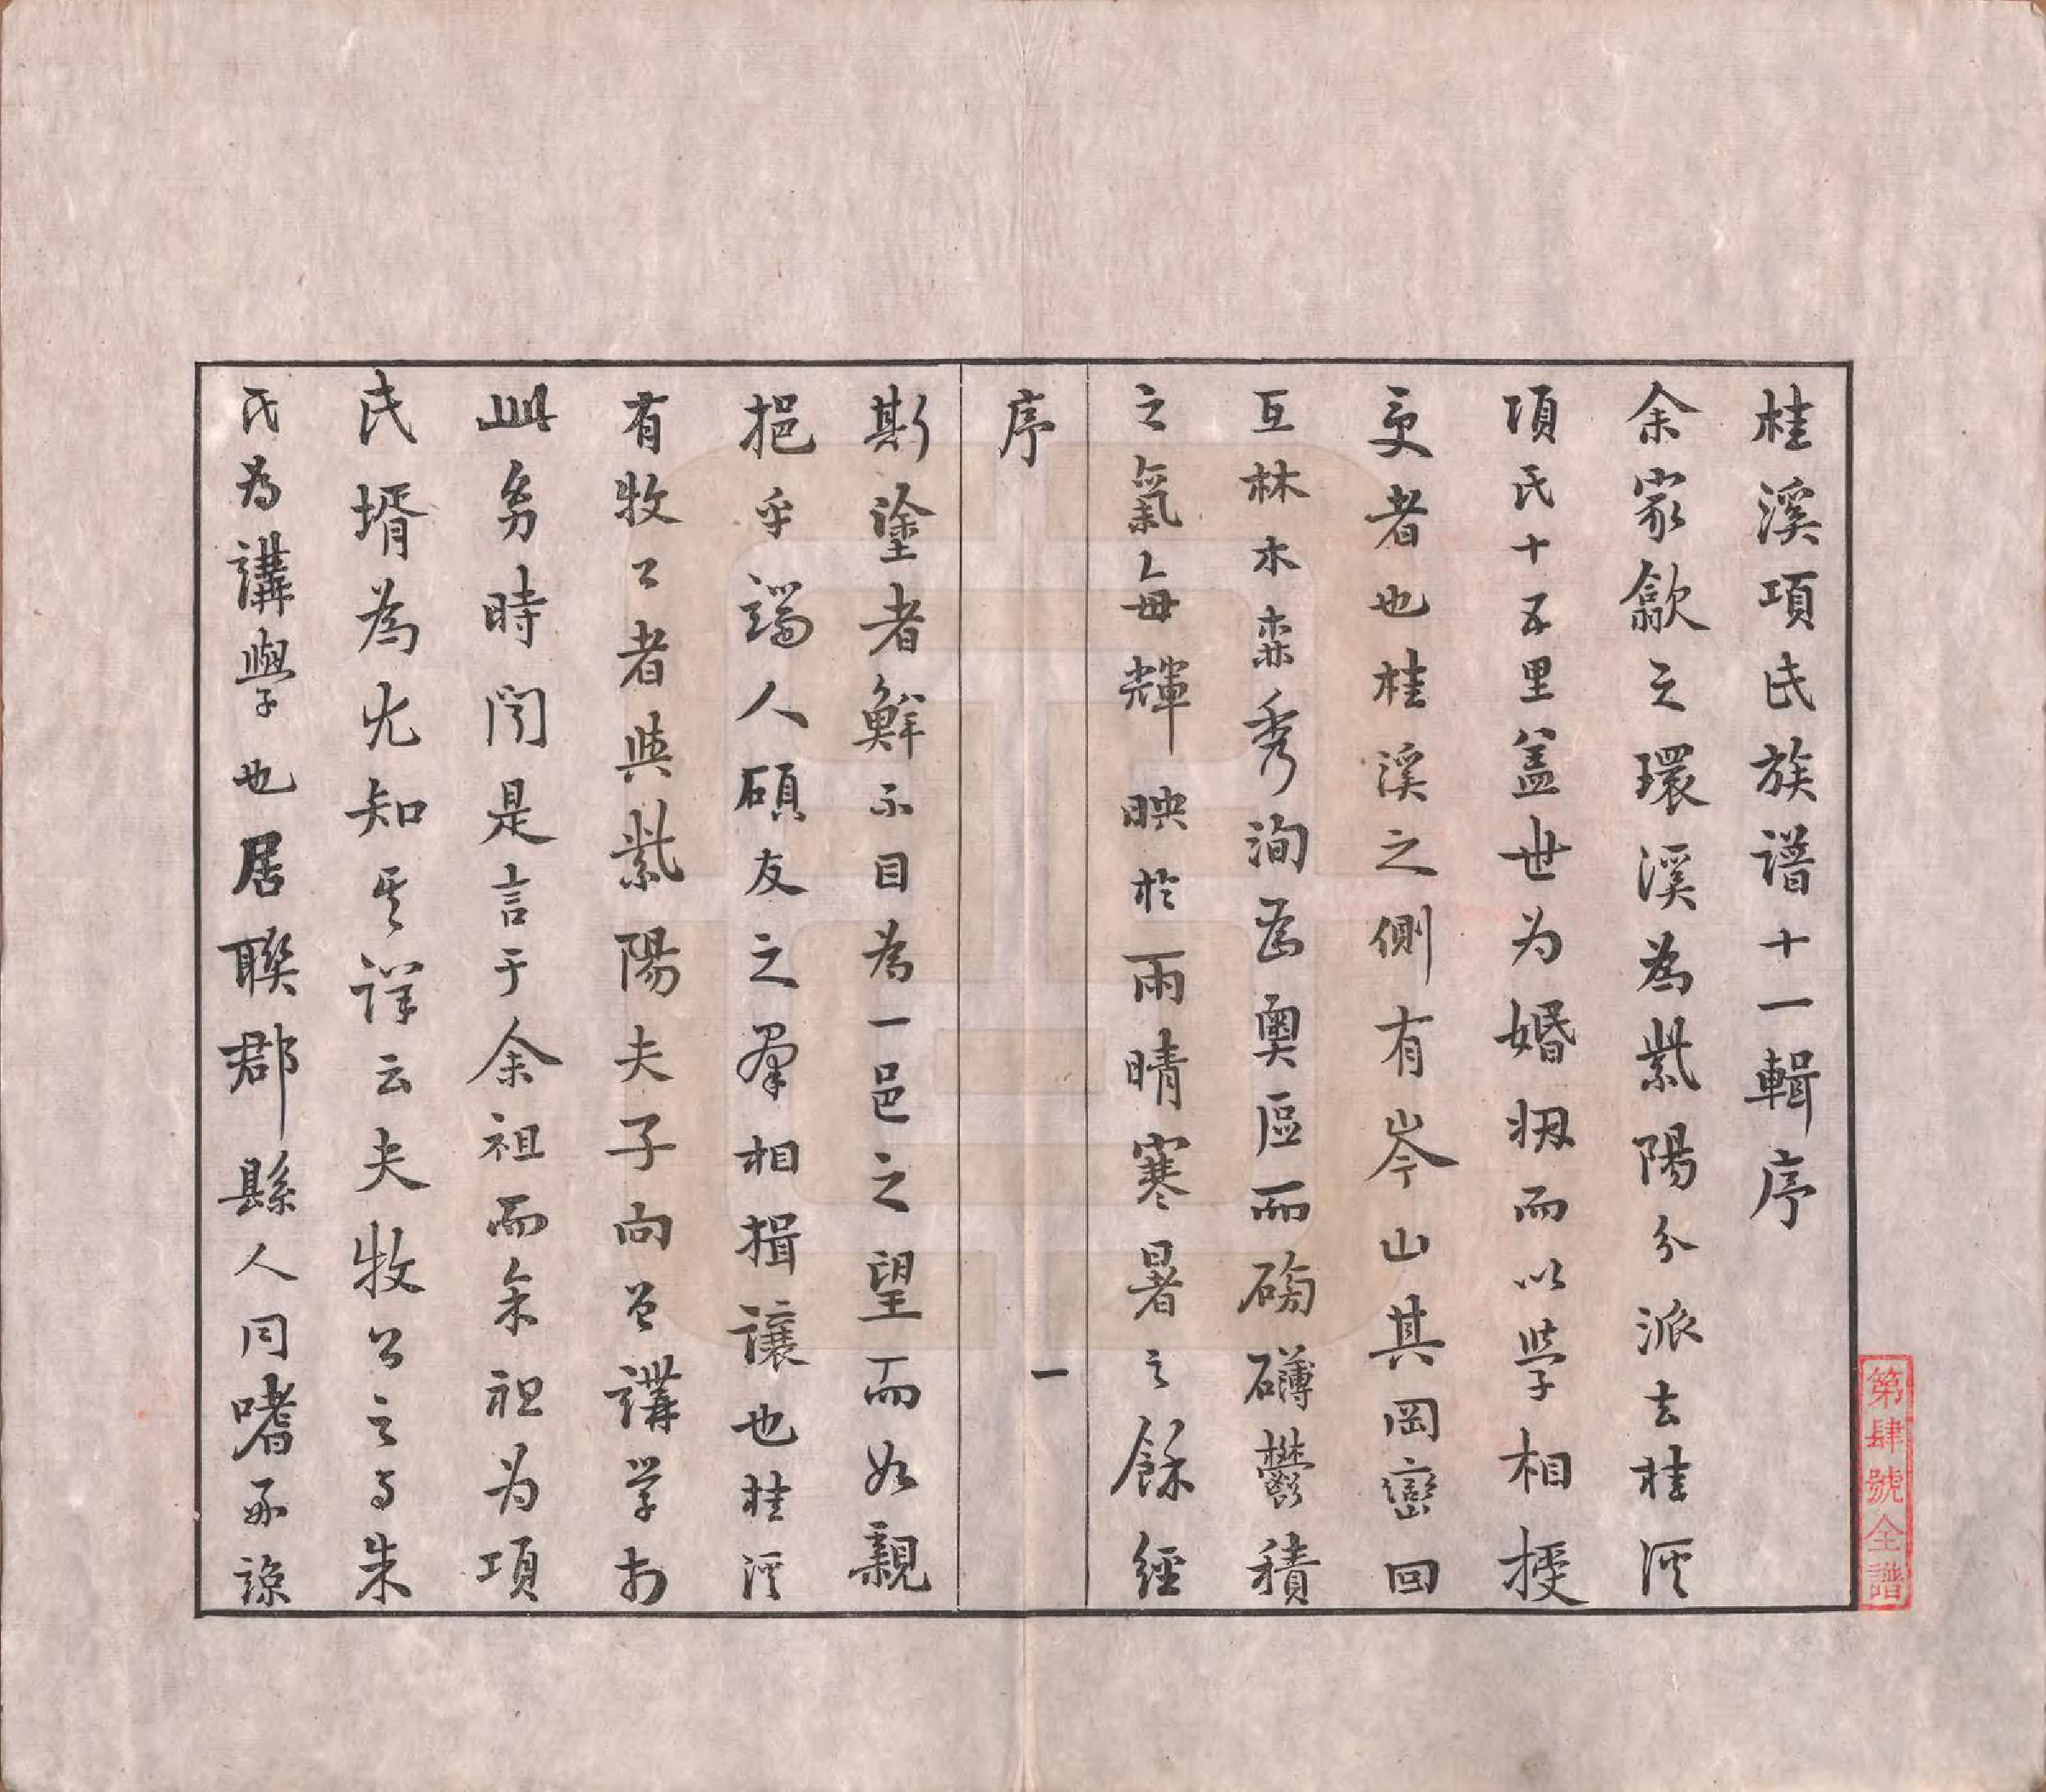 桂溪項氏族譜十一輯序
余家歙之環溪為紫陽分派去桂溪
項氏十五里蓋世为婚姻而以學相授
受者也桂溪之側有岑山其岡巒回
互林木森秀洵為奧區而磅礴鬱積
之氣每輝映於雨晴寒暑之餘經
序
一
斯塗者鮮不目為一邑之望而如親
挹乎端人碩友之羣相揖讓也桂溪
有牧公者與紫陽夫子向曾講学於
此髫時聞是言于余祖而余祖为項
氏壻為尤知其詳云夫牧公之与朱
氏為講學也居聯郡縣人同嗜而諒
第肆號全譜